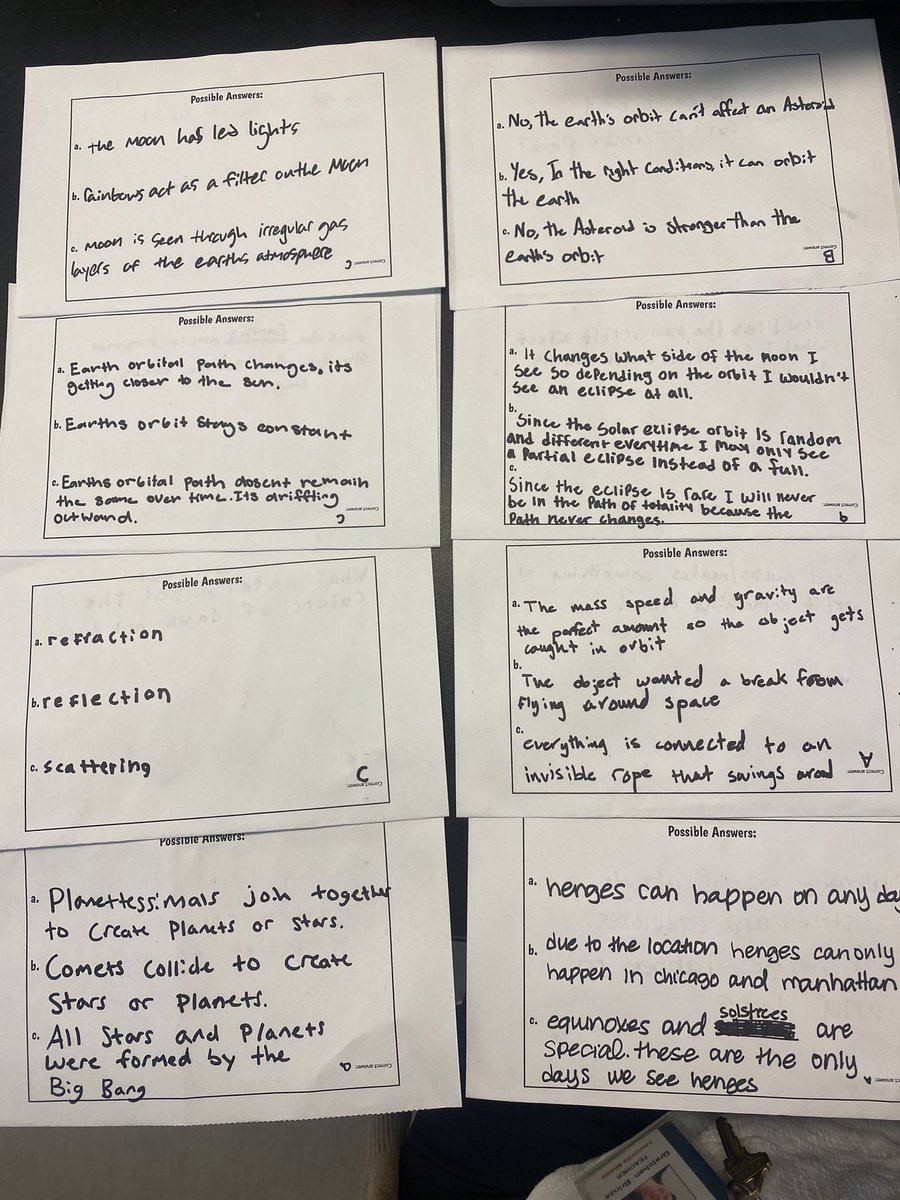 Possible Answers:
a. the Moon has led lights
b. rainbows act as a filter on the Moon
c. Moon is seen through irregular gas
layers of the earths atmosphere
Correct answer:
C
Possible Answers:
a. No, The earth's orbit can't affect an Asteroid
b. Yes, In the right Conditions, it can orbit
the earth
c. No, the Asteroid is stronger than the
earth's orbit
Correct answer:
B
Possible Answers:
a. Earth orbital path changes, its
getting closer to the sun.
b. Earths orbit stays constant
c. Earths orbital path dosent remain
the same over time. Its driffting
outward.
Correct answer:
C
Possible Answers:
a. It changes what side of the moon I
see so depending on the orbit I wouldn't
see an eclipse at all.
b.
Since the solar eclipse orbit is random
and different everytime I may only see
a partial eclipse instead of a full.
c.
Since the eclipse is rare I will never
be in the path of totality because the
path never changes.
Correct answer:
Possible Answers:
a. refraction
b. reflection
c. scattering
Correct answer:
C
Possible Answers:
a. The mass speed and gravity are
the perfect amount so the object gets
caught in orbit
b.
The object wanted a break from
flying around space
c.
everything is connected to an
invisible rope that swings
Correct answer:
A
Possible Answers:
a. Planettessimals join together
to create planets or stars.
b. Comets collide to create
stars or planets.
c. All stars and planets
were formed by the
Big Bang
Correct answer:
a
Possible Answers:
a. henges can happen on any day
b. due to the location henges can only
happen in chicago and manhattan
c. equinoxes and solstices are
special. these are the only
days we see henges
Gretchen
TEACHER